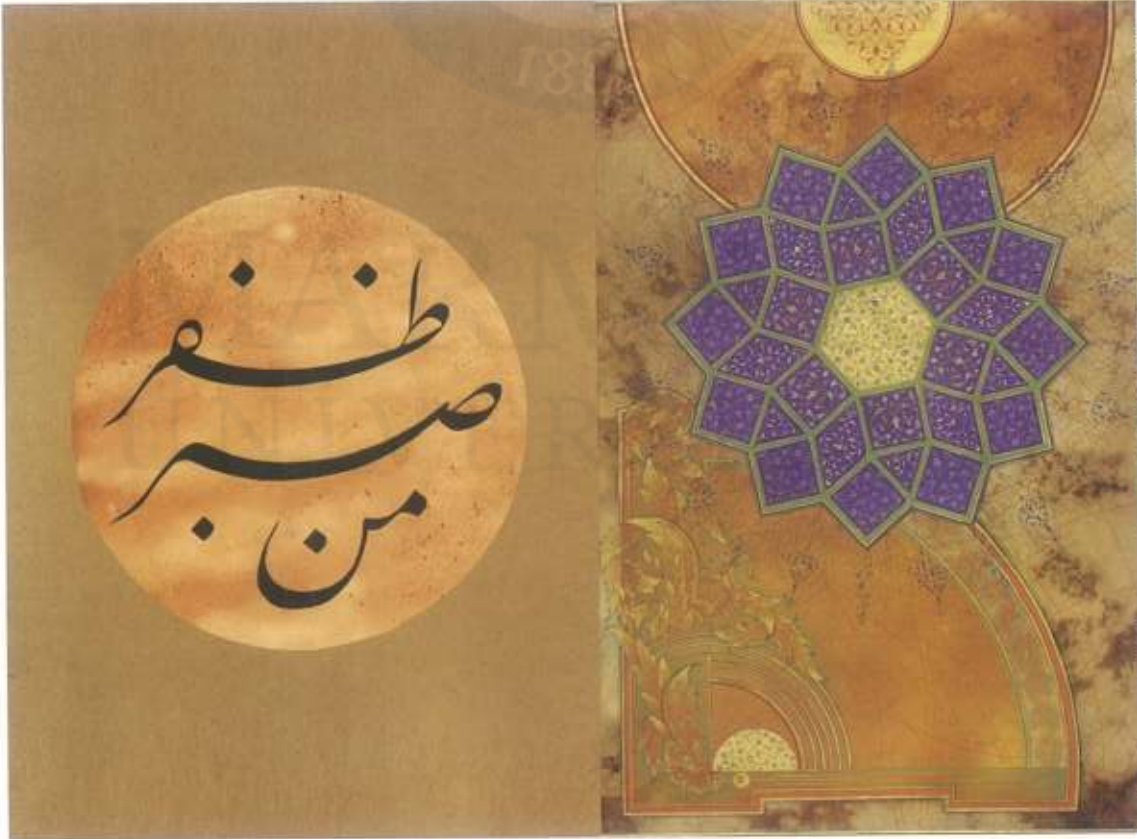 من
صبر
ظفر